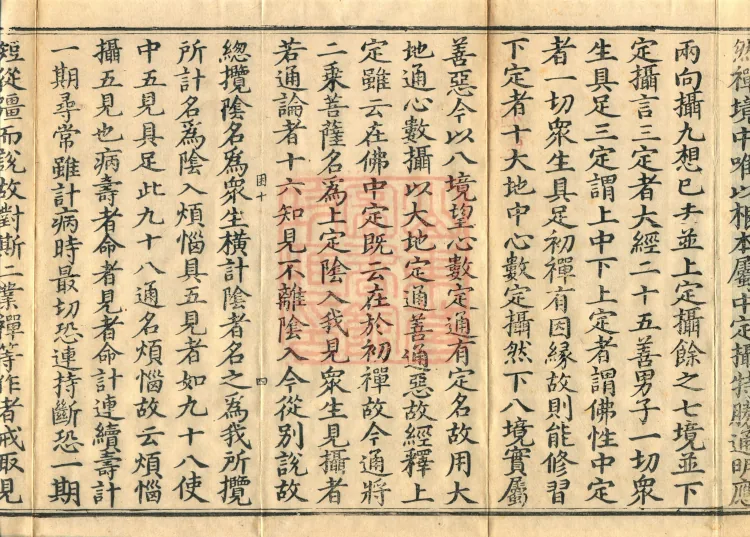 然禪境中唯以根本屬中定攝特勝通明應
兩向攝九想已去並上定攝餘之七境並下
定攝言三定者大經二十五善男子一切衆
生具足三定謂上中下上定者謂佛性中定
者一切衆生具足初禪有因緣故則能修習
下定者十大地中心數定攝然下八境實屬
善惡今以八境望心數定通有定名故用大
地通心數攝以大地定通善通惡故經釋上
定雖云在佛中定旣云在於初禪故今通將
二乗菩薩名爲上定陰入我見衆生見攝者
若通論者十六知見不離陰入今從別說故
困十
四
總攬陰名爲衆生橫計陰者名之爲我所攬
所計名爲陰入煩惱具五見者如九十八使
中五見具足此九十八通名煩惱故云煩惱
攝五見也病壽者命者見者命計連續壽計
一期尋常雖計病時最切恐連持斷恐一期
短從彊而說故對斯二業禪等作者戒取見